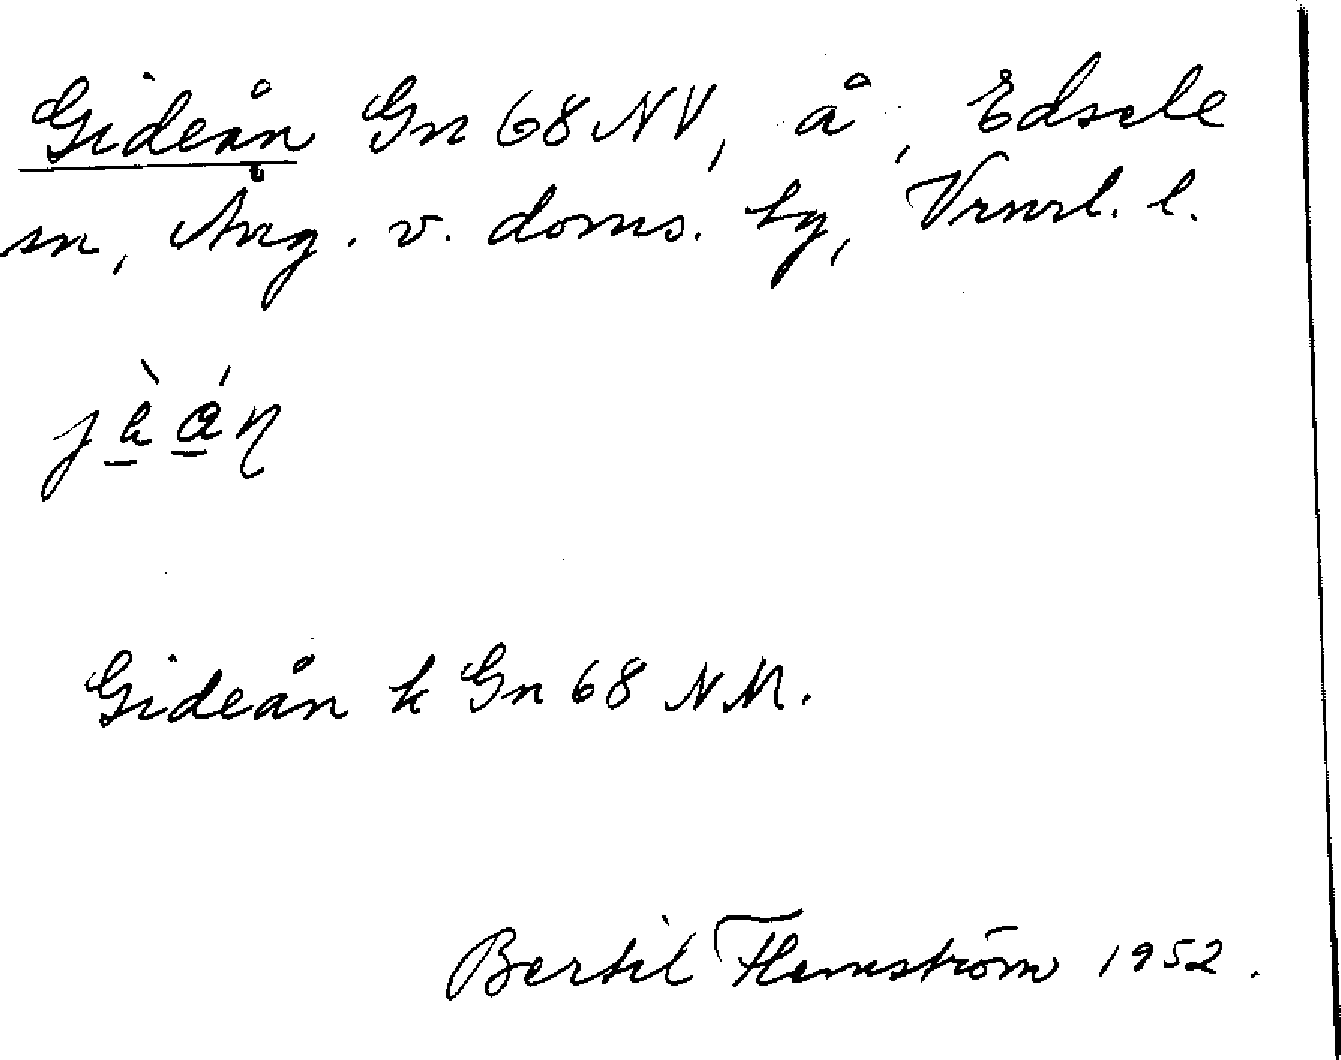 Gideån Gn 68 NV, å, Edsele
sn, Ång. v. doms. hg, Vrnrl. l.
Gideån k Gn 68 NM.
Bertil Flemström 1952.